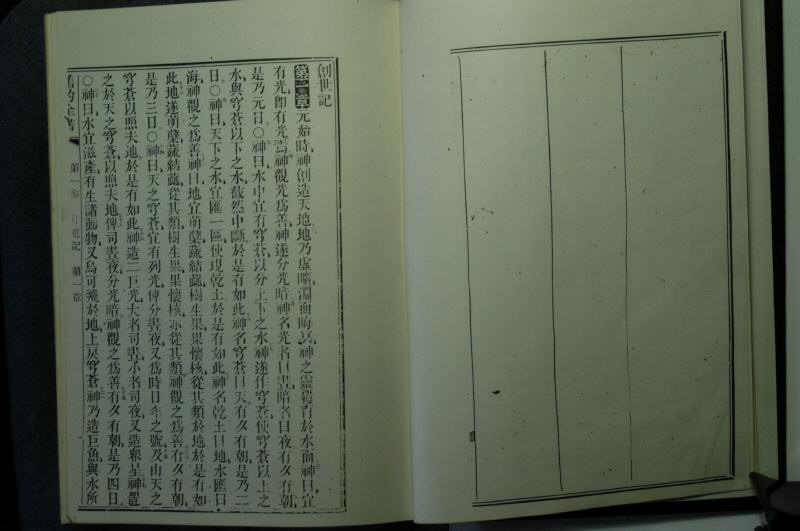 創世記
第一章元始時、神創造天地、地乃虛曠、淵面晦冥、神之靈覆育於水面、神曰、宜
有光、即有光焉、神觀光爲善、神遂分光暗、神名光者曰晝、暗者曰夜、有夕有朝、
是乃元日○神曰、水中宜有穹蒼、以分上下之水、神遂作穹蒼、使穹蒼以上之
水與穹蒼以下之水、截然中斷、於是有如此、神名穹蒼曰天、有夕有朝、是乃二
日○神曰、天下之水宜匯一區、使現乾土、於是有如此、神名乾土曰地、水匯曰
海、神觀之爲善、神曰、地宜萌蘗、蔬結蓏、樹生果、果懷核、從其類、於地、於是有如
此、地遂萌蘗、蔬結蓏、從其類、樹生果、果懷核、亦從其類、神觀之爲善、有夕有朝、
是乃三日○神曰、天之穹蒼、宜有列光、俾分晝夜、又爲時日年之號、及由天之
穹蒼以照夫地、於是有如此、神造二巨光、大者司晝、小者司夜、又造衆星、神置
之於天之穹蒼、以照夫地、俾司晝夜、分光暗、神觀之爲善、有夕有朝、是乃四日
○神曰、水宜滋產有生諸動物、又鳥可飛於地上戾穹蒼、神乃造巨魚、與水所
舊約全書 第一卷 創世記 第一章